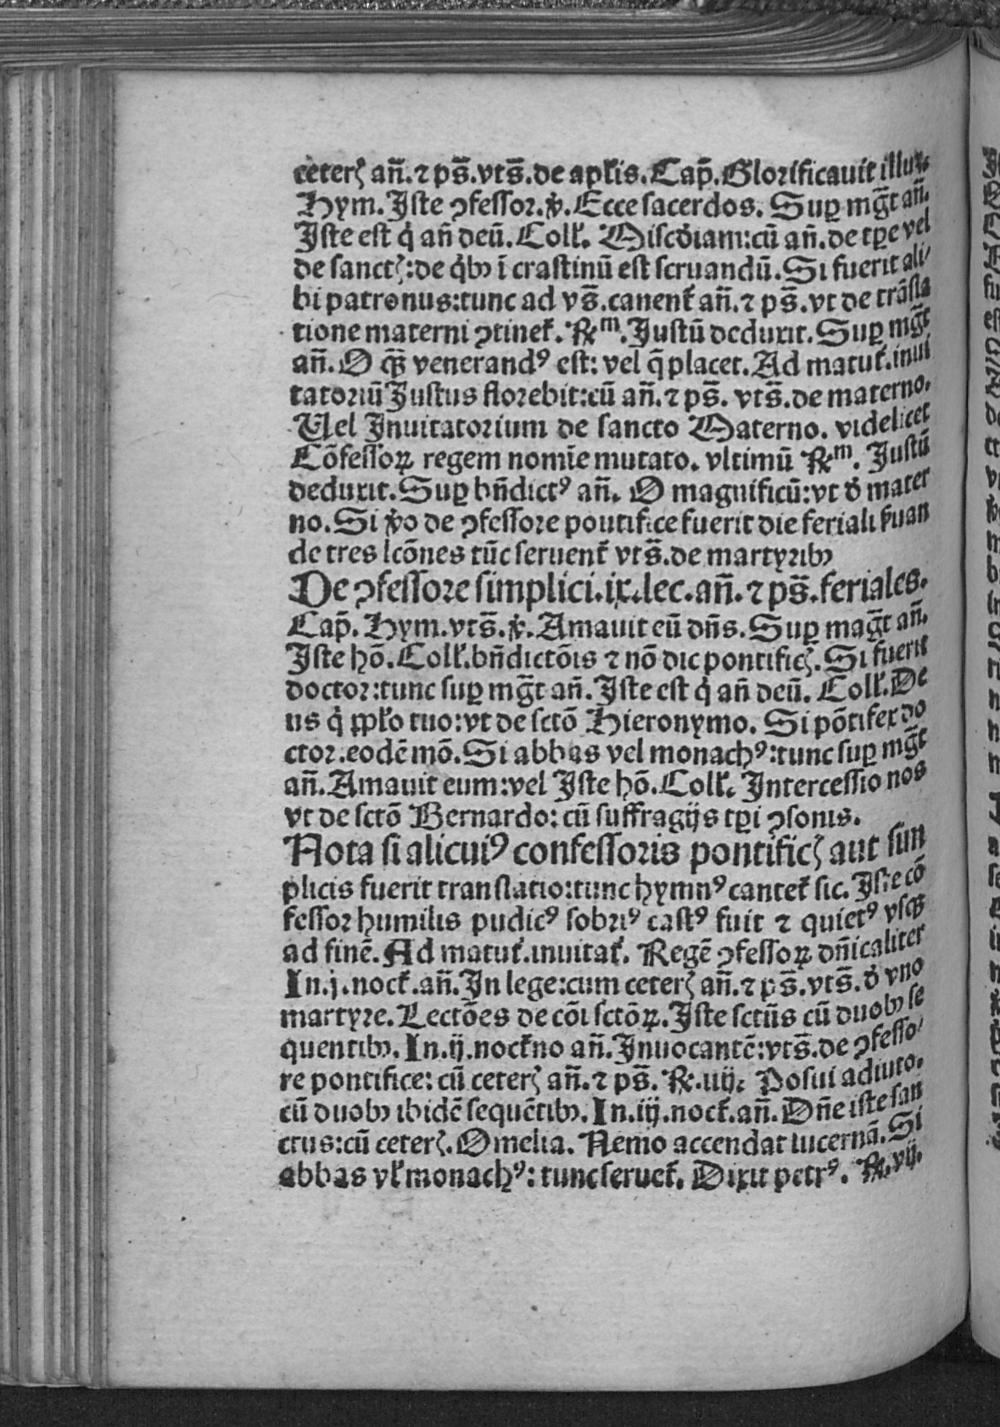 ceterꝭ añ. ⁊ pš. vtš. de apłis. Cap̃. Glorificauit illuꝫ.
Hym. Iste ꝯfessor. ꝟ. Ecce sacerdos. Suꝑ mg̃t añ.
Iste est q̇ añ deū. Coll̕. Misc̓diam: cū añ. de tꝑe vel
de sanctꝭ: de q̇bꝰ ī crastinū est seruandū. Si fuerit ali⸗
bi patronus: tunc ad vš. canent̕ añ. ⁊ pš. vt de trāsla
tione materni ꝯtinet̕. ℞ᵐ. Iustū deduxit. Suꝑ mg̃t
añ. O qꝫ̃ venerandꝰ est: vel q̄ placet. Ad matut̕. inui
tatoriū Iustus florebit: cū añ. ⁊ pš. vtš. de materno.
Vel Inuitatorium de sancto Materno. videlicet
Cōfessoꝝ regem nomīe mutato. vltimū ℞ᵐ. Iustū
deduxit. Suꝑ bñdictꝰ añ. O magnificū: vt d̓ mater
no. Si ꝟo de ꝯfessore pontifice fuerit die feriali ẜuan
de tres lcōnes tūc seruent̕ vtš. de martyribꝰ
De ꝯfessore simplici. ix. lec. añ. ⁊ pš. feriales.
Cap̃. Hym. vtš. ꝟ. Amauit eū dñs. Suꝑ mag̃t añ.
Iste hō. Coll̕. bñdictōis ⁊ nō dic pontificꝭ. Si fuerit
doctor: tunc suꝑ mg̃t añ. Iste est q̇ añ deū. Coll̕. De
us q̇ ppło tuo: vt de sctō Hieronymo. Si pōtifex do
ctor. eodē mō. Si abbas vel monachꝰ: tunc suꝑ mg̃t
añ. Amauit eum: vel Iste hō. Coll̕. Intercessio nos
vt de sctō Bernardo: cū suffragijs tꝑi ꝯsonis.
Nota si alicuiꝰ confessoris pontificꝭ aut sim
plicis fuerit translatio: tunc hymnꝰ cantet̕ sic. Iste cō
fessor humilis pudicꝰ sobriꝰ castꝰ fuit ⁊ quietꝰ vsqꝫ
ad finē. Ad matut̕. inuitat̕. Regē ꝯfessoꝝ dñicaliter
In. j. noct̕. añ. In lege: cum ceterꝭ añ. ⁊ pš. vtš. d̓ vno
martyre. Lectōes de cōi sctōꝝ. Iste sctūs cū duobꝰ se
quentibꝰ. In. ij. noct̕no añ. Inuocantē: vtš. de ꝯfesso⸗
re pontifice: cū ceterꝭ añ. ⁊ pš. ℞. iiij. Posui adiuto.
cū duobꝰ ibidē sequētibꝰ. In. iij. noct̕. añ. Dñe iste san
ctus: cū ceterꝭ. Omelia. Nemo accendat lucernā. Si
abbas vł monachꝰ: tunc seruet̕. Dixit petrꝰ. ℞. vij.